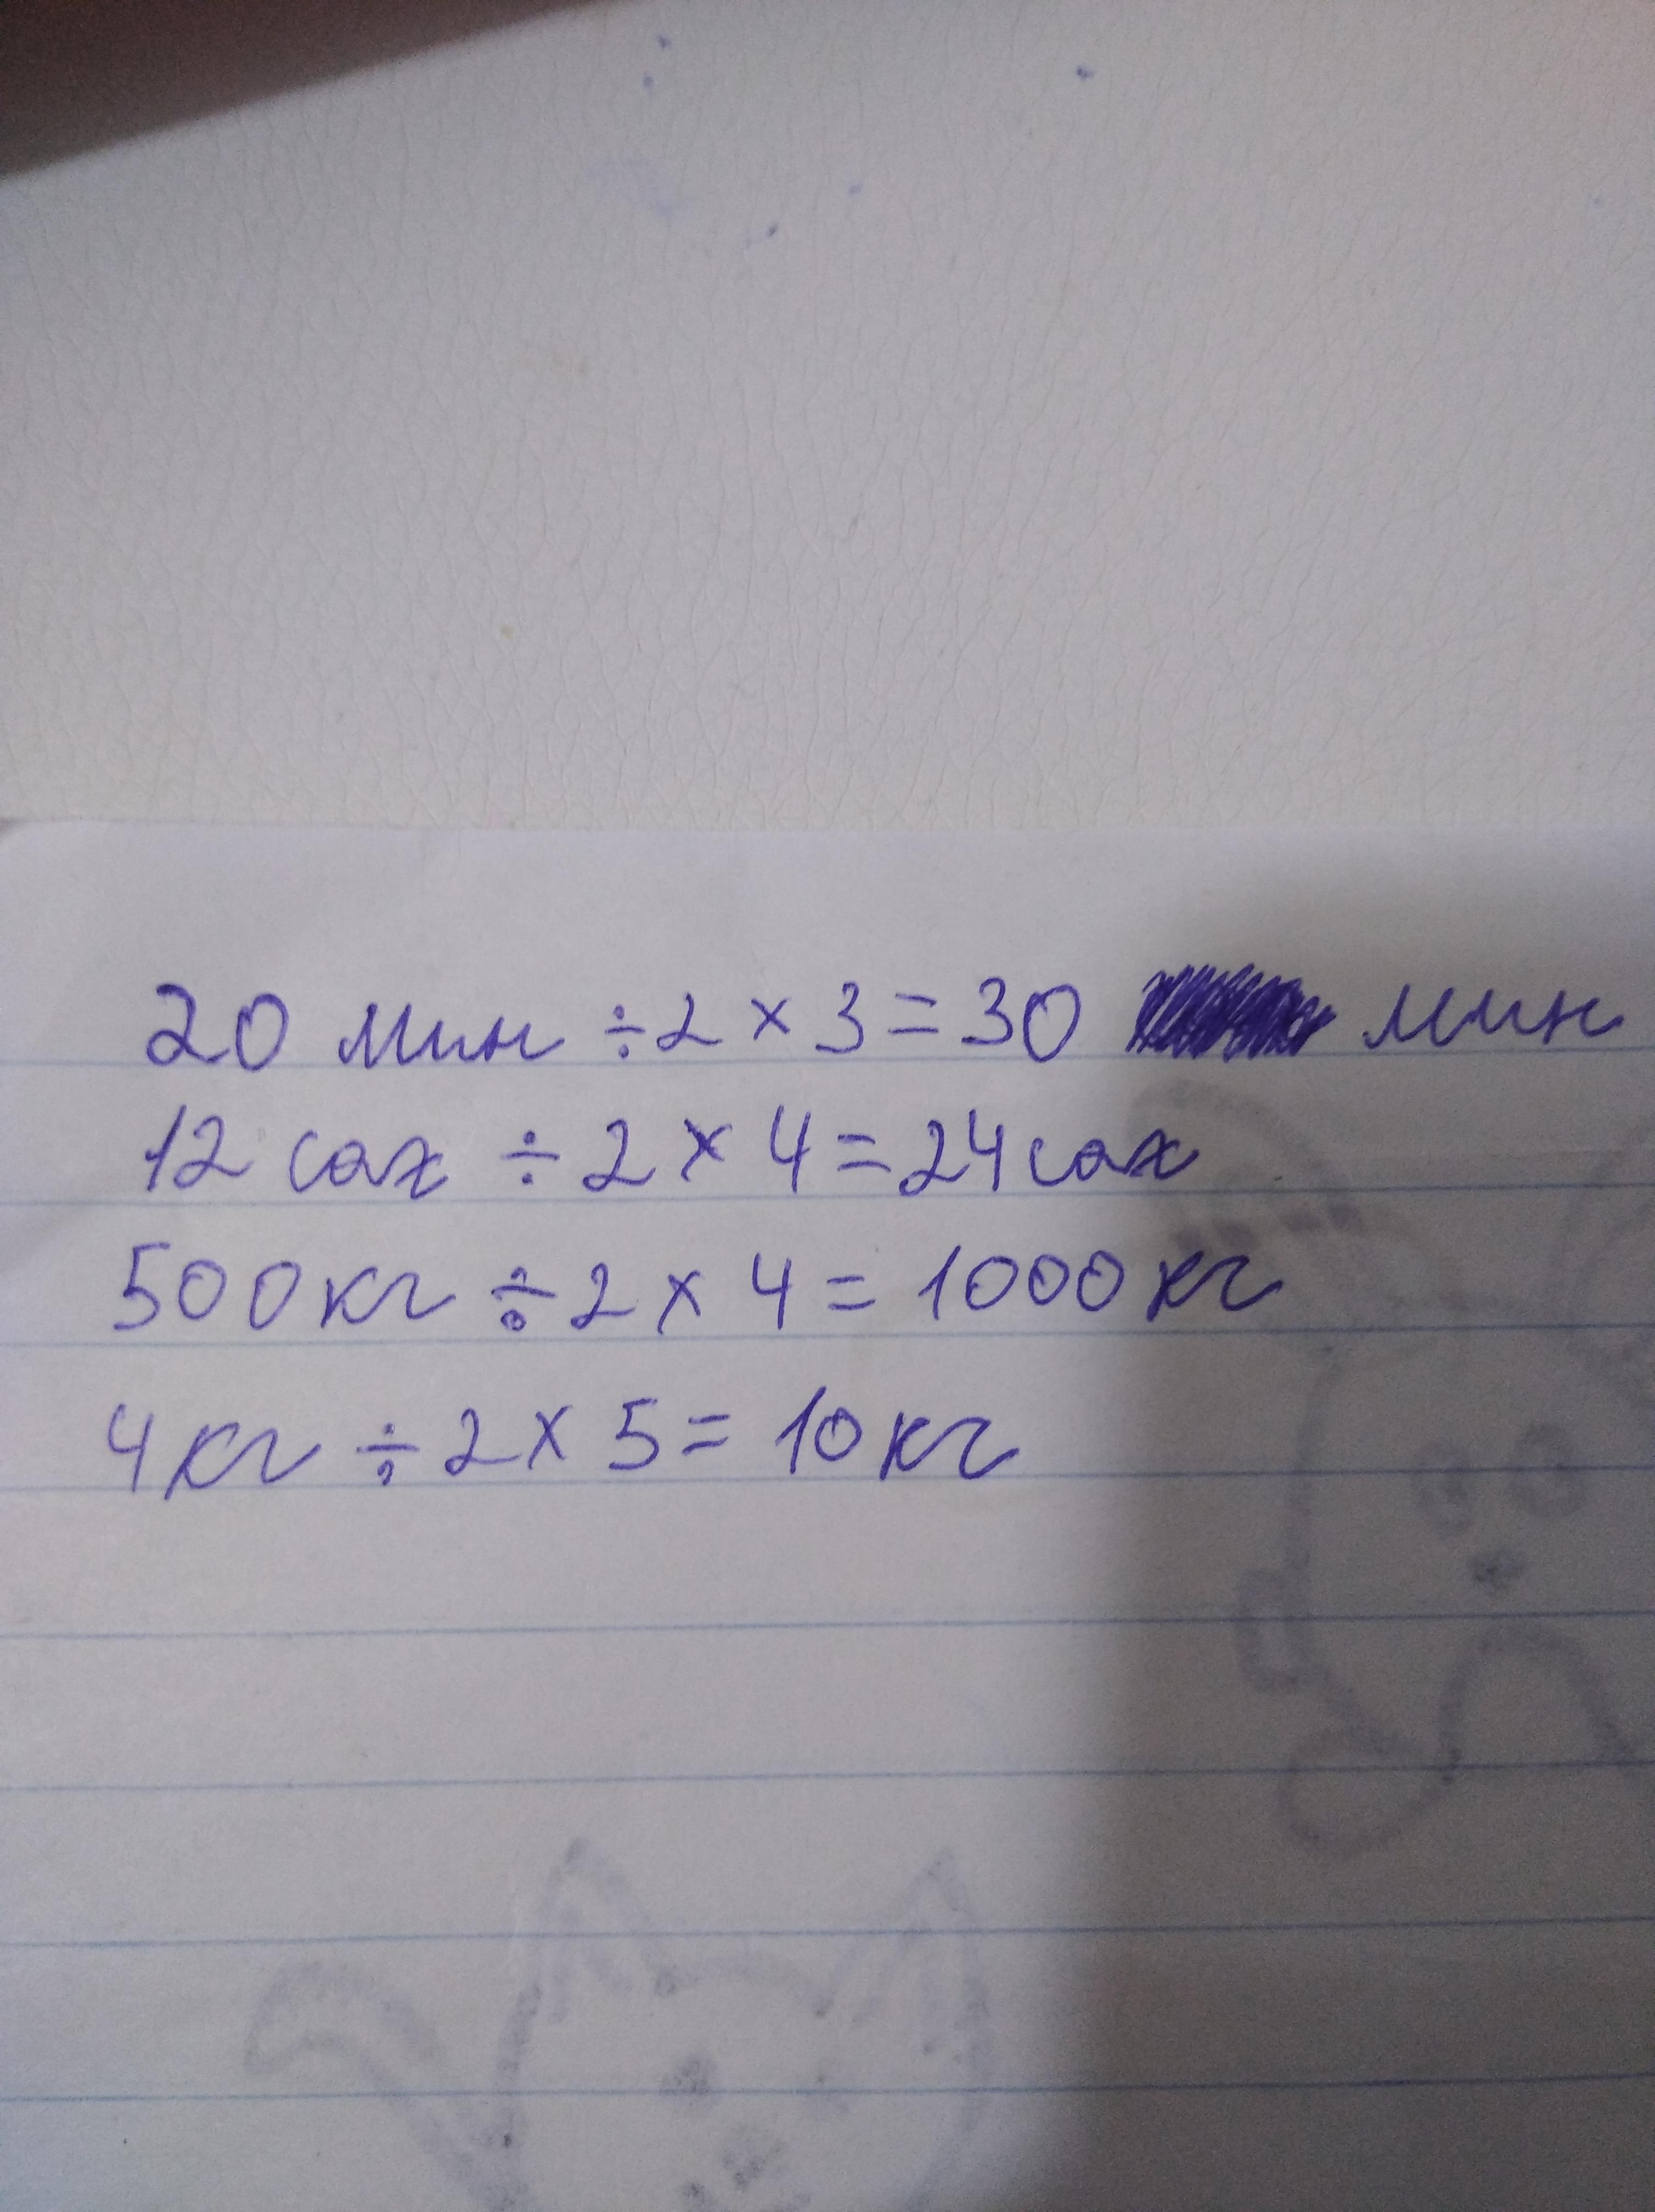 20 мин ÷ 2 × 3 = 30 мин
12 сах ÷ 2 × 4 = 24 сах
500 кг ÷ 2 × 4 = 1000 кг
4 кг ÷ 2 × 5 = 10 кг